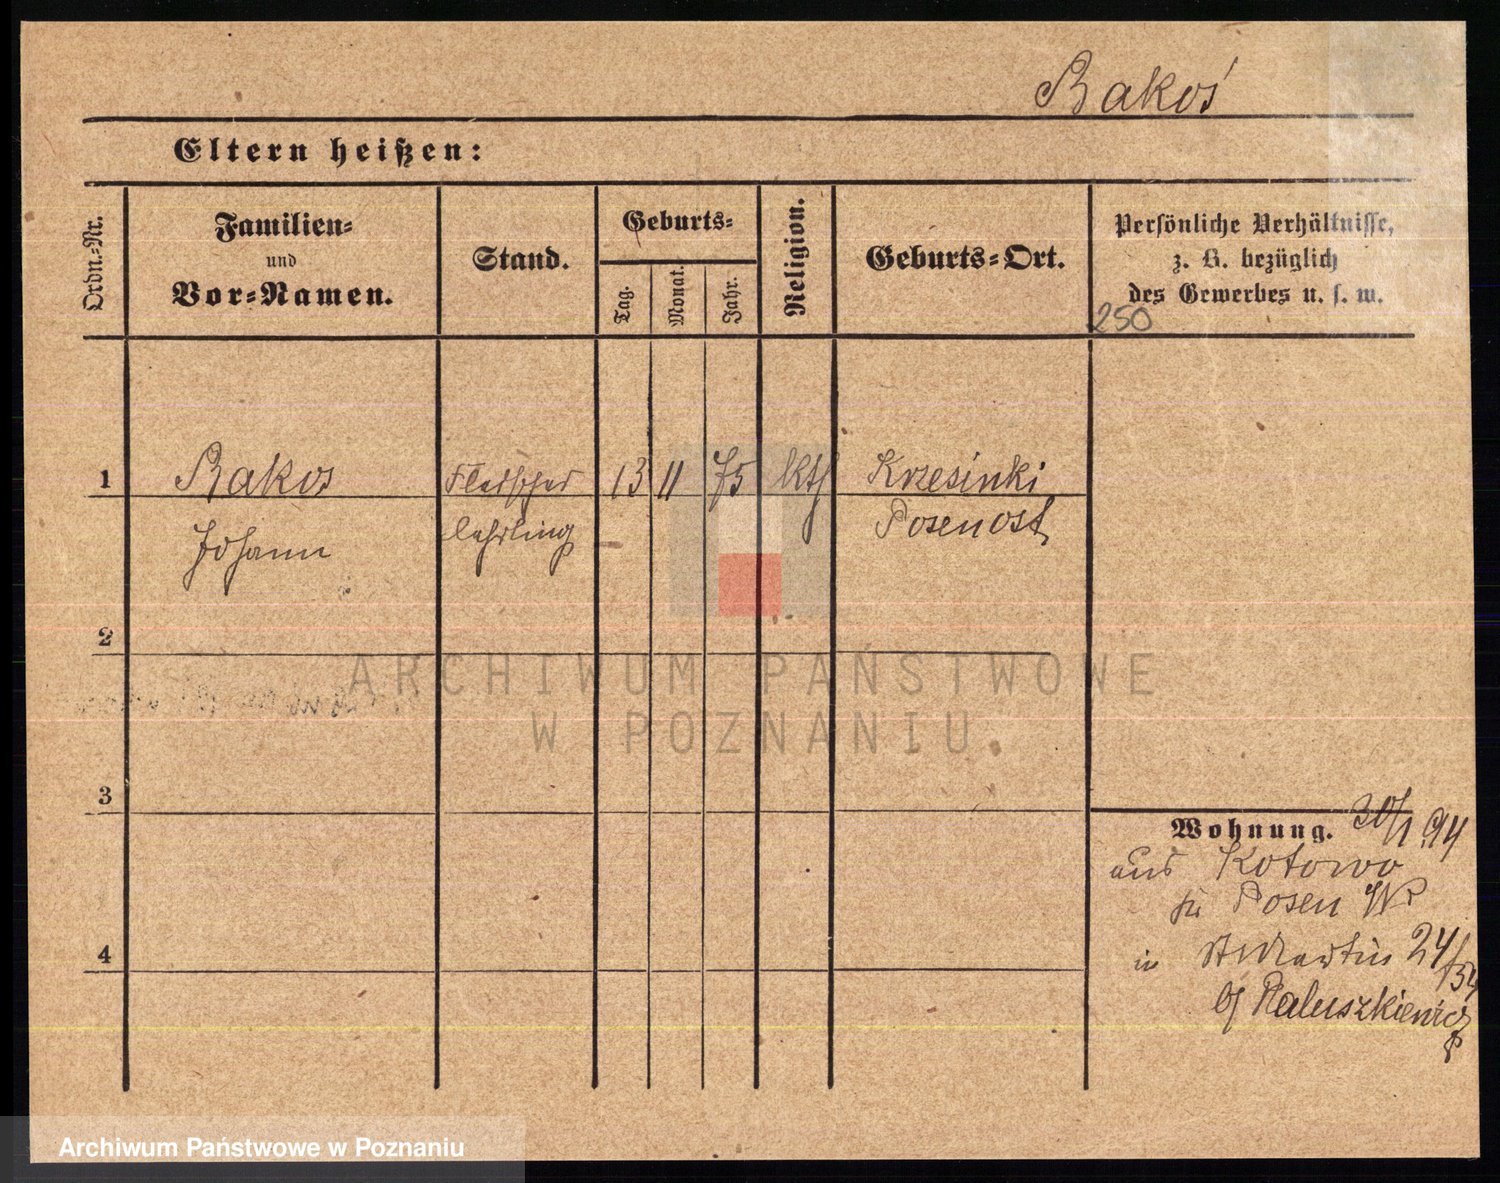 Bakoś
Eltern heißen:
Ordn.-Nr.
Familien-
und
Vor-Namen.
Stand.
Geburts-
Tag.
Monat.
Jahr.
Religion.
Geburts-Ort.
Persönliche Verhältnisse,
z. B. bezüglich
des Gewerbes u. s. w.
250
1
Bakos
Fleischer
13
11
75
kth
Krzesinki
Johann
lehrling
Posen ost
2
ARCHIWUM PAŃSTWOWE
W POZNANIU
3
Wohnung. 30/1.94
aus Kotowo
zu Posen
in St Martin 24/
b/ Paluszkiewicz
4
Archiwum Państwowe w Poznaniu